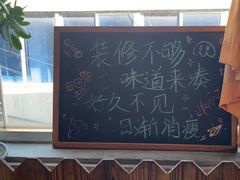 装修不够
味道来凑
好久不见
日渐消瘦